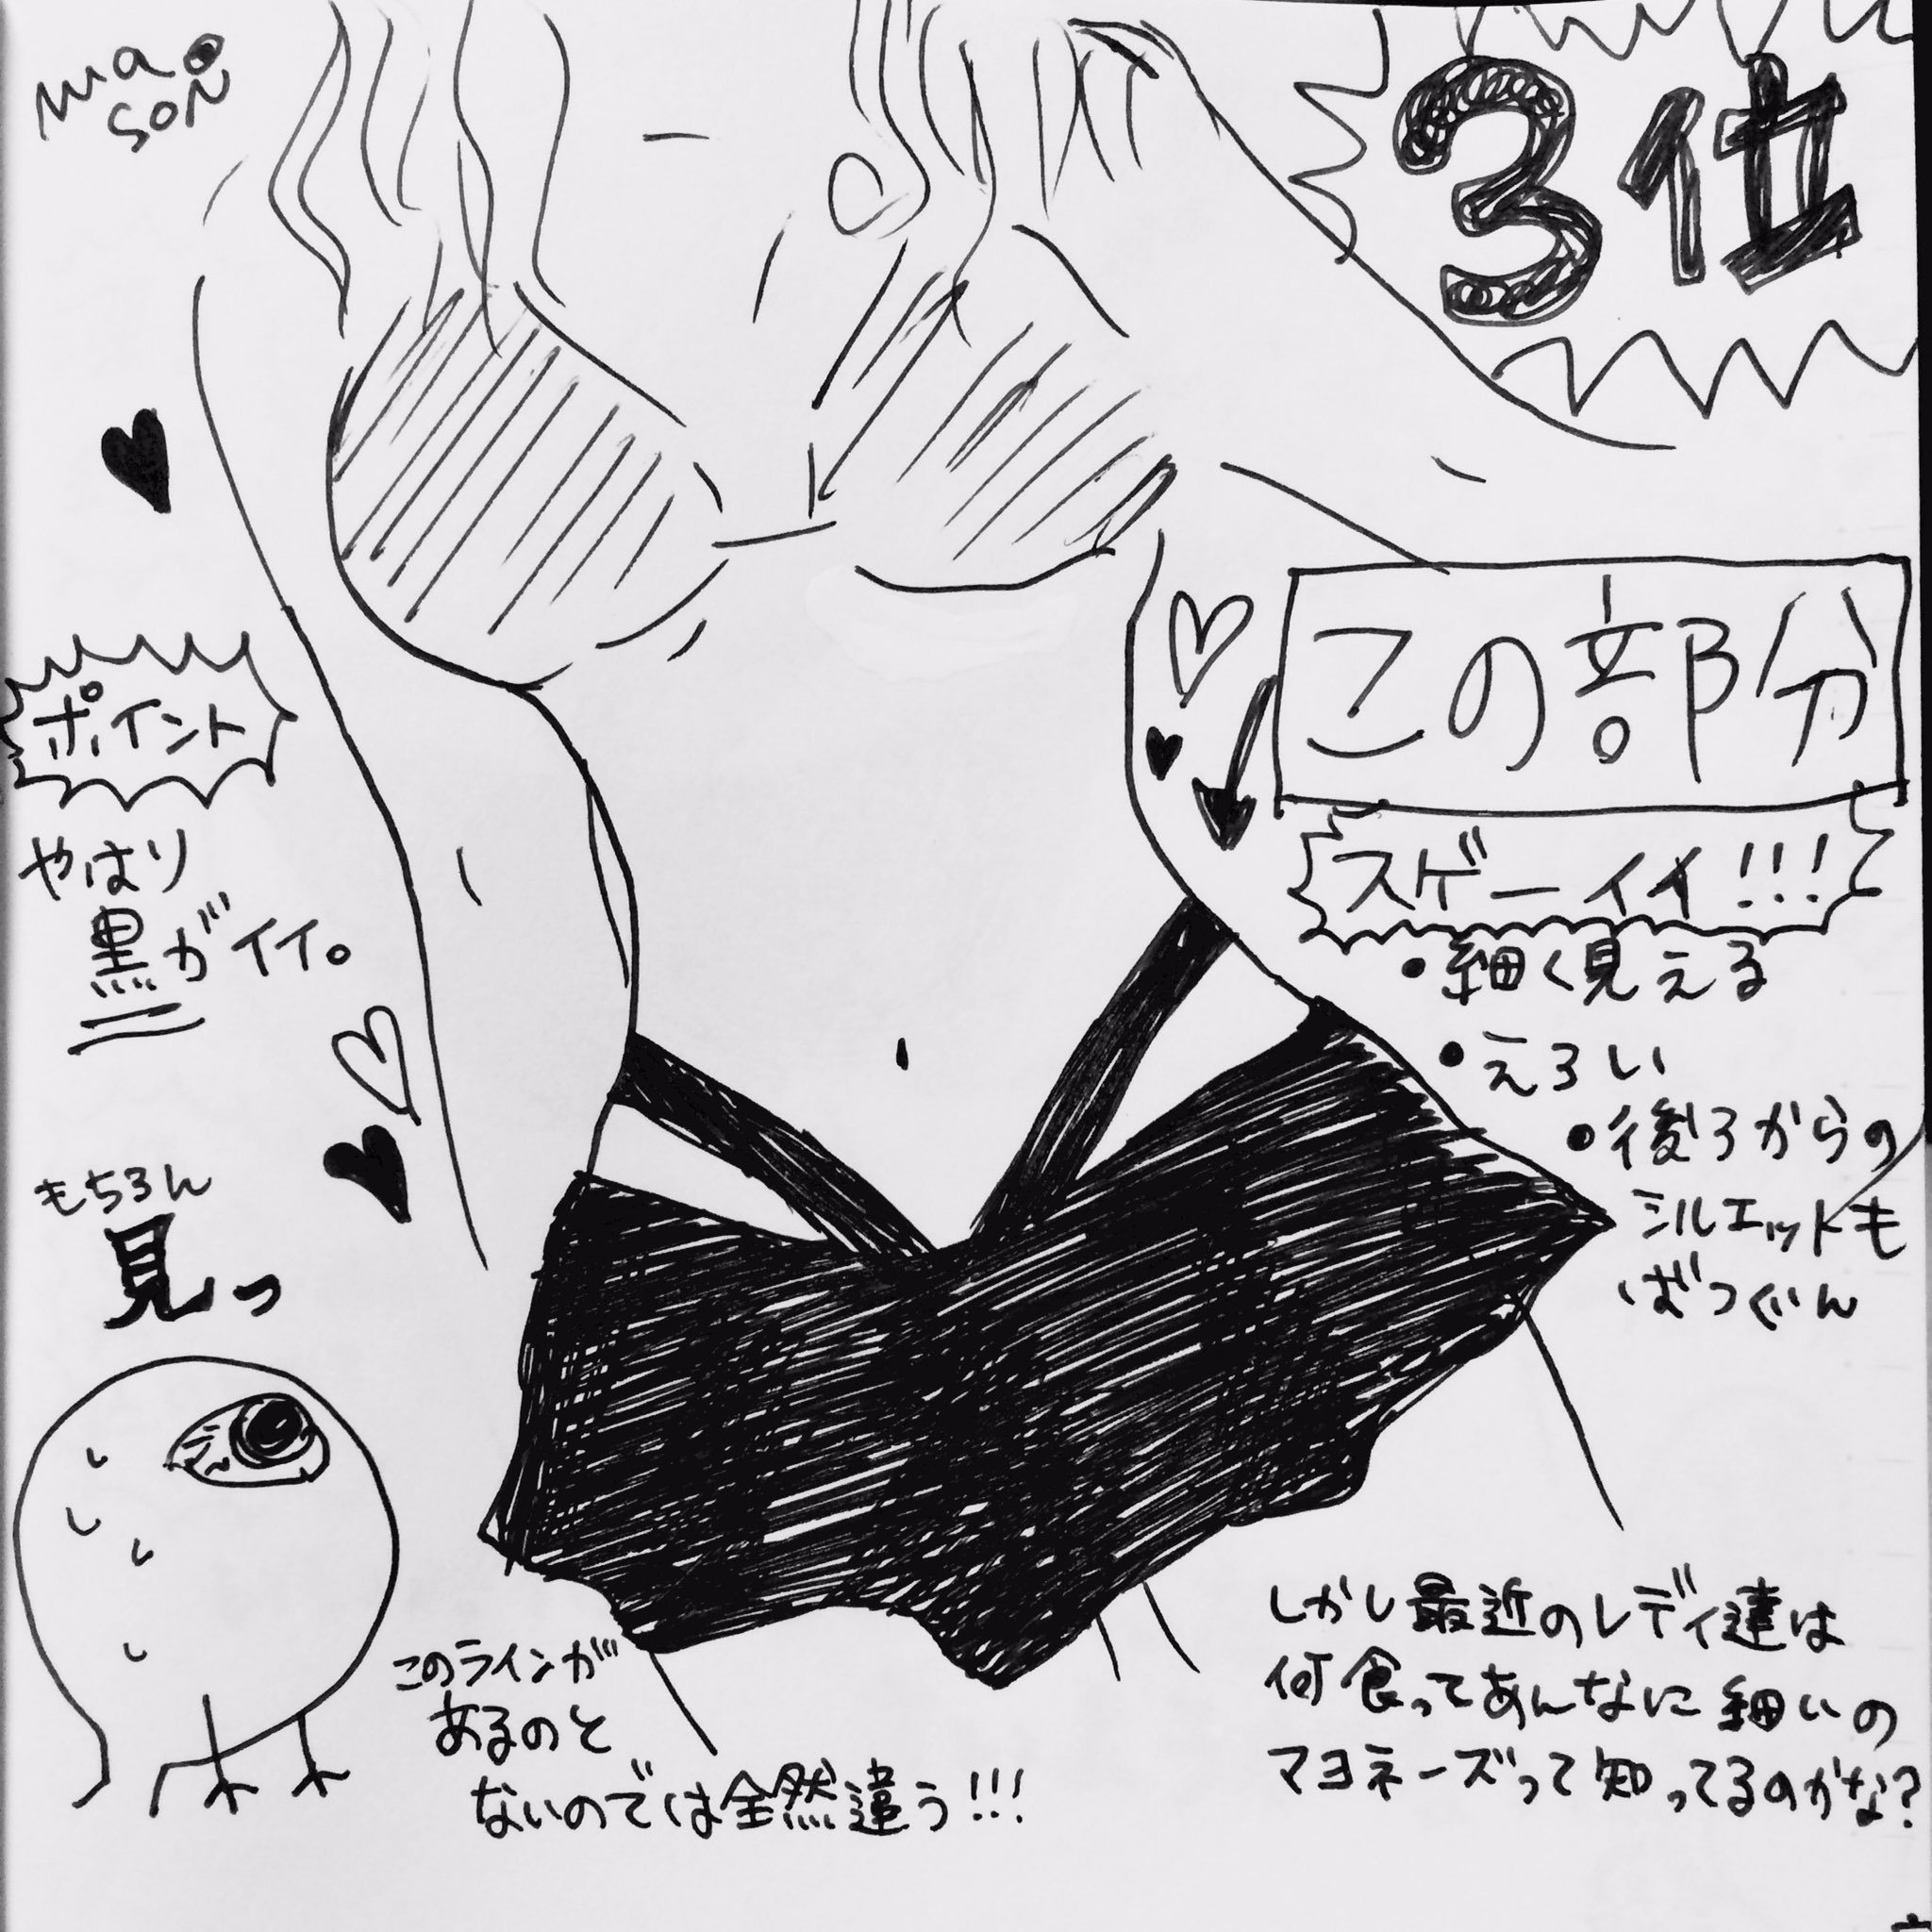 mao
SON
3位
この部分
スゲーイイ!!!
・細く見える
・えろい
・後ろからの
シルエットも
ばつぐん
ポイント
やはり
黒がイイ。
もちろん
見っ
このラインが
あるのと
ないのでは全然違う!!!
しかし最近のレディ達は
何食ってあんなに細いの
マヨネーズって知ってるのかな?